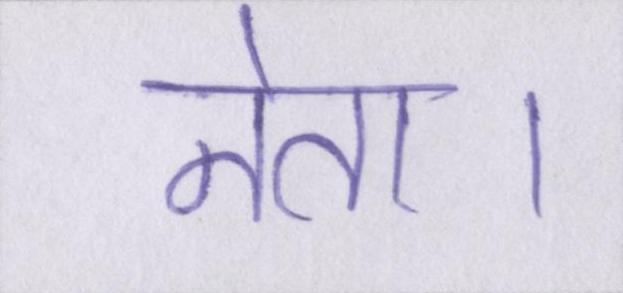 नेता।